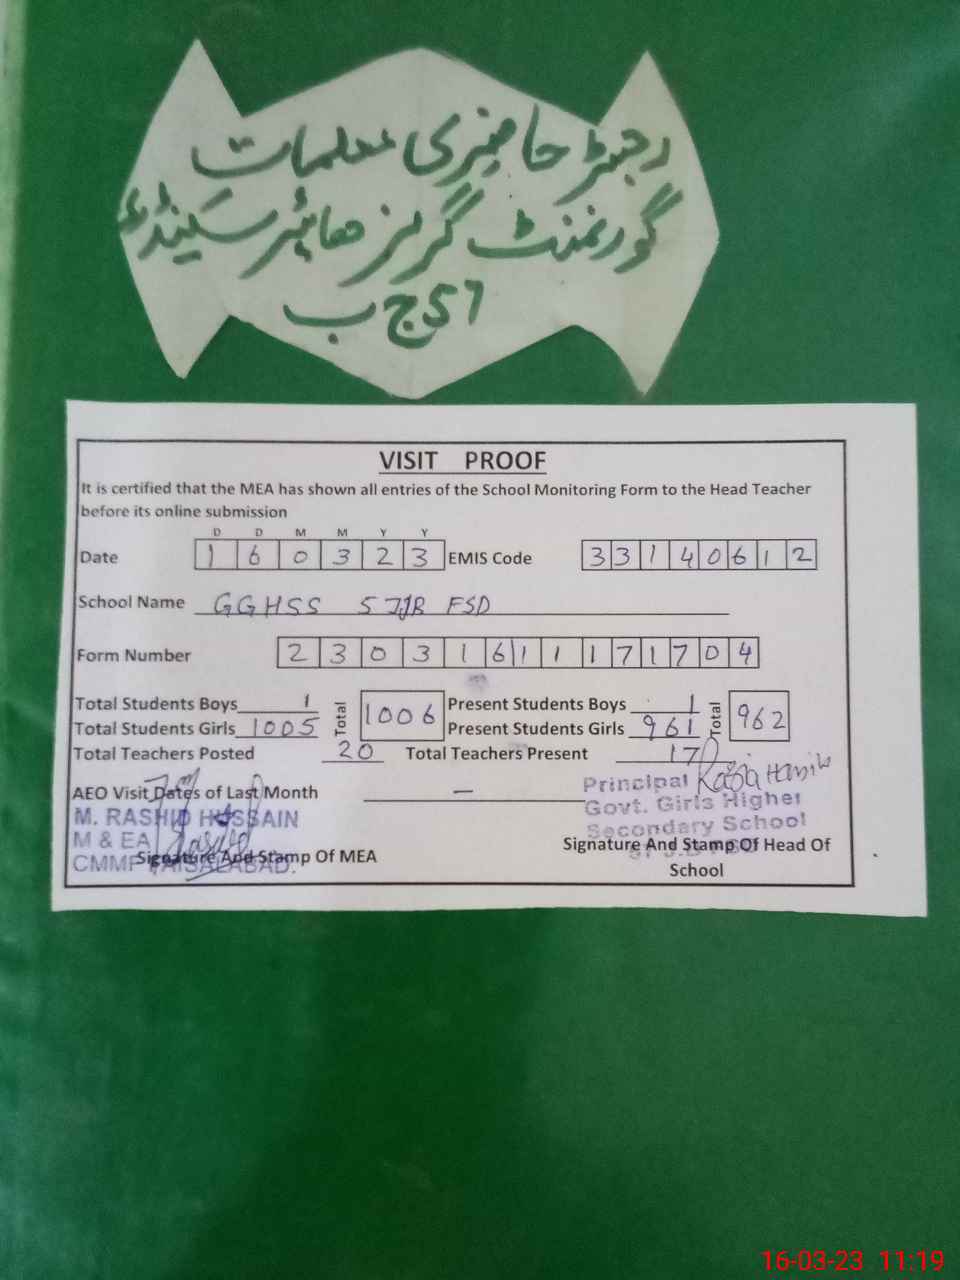 رجسٹر حاضری معلمات
گورنمنٹ گرلز ہائیر سیکنڈری
57 ج ب
VISIT PROOF
It is certified that the MEA has shown all entries of the School Monitoring Form to the Head Teacher
before its online submission
D D M M Y Y
Date 1 6 0 3 2 3 EMIS Code 3 3 1 4 0 6 1 2
School Name GGHSS 57JB FSD
Form Number 2 3 0 3 1 6 1 1 1 7 1 7 0 4
Total Students Boys 1 Total 1006 Present Students Boys 1 Total 962
Total Students Girls 1005 Present Students Girls 961
Total Teachers Posted 20 Total Teachers Present 17
AEO Visit Dates of Last Month –
M. RASHID HUSSAIN
M & EA
CMMF FAISALABAD.
Signature And Stamp Of MEA
Principal
Govt. Girls Higher
Secondary School
Signature And Stamp Of Head Of
School
16-03-23 11:19